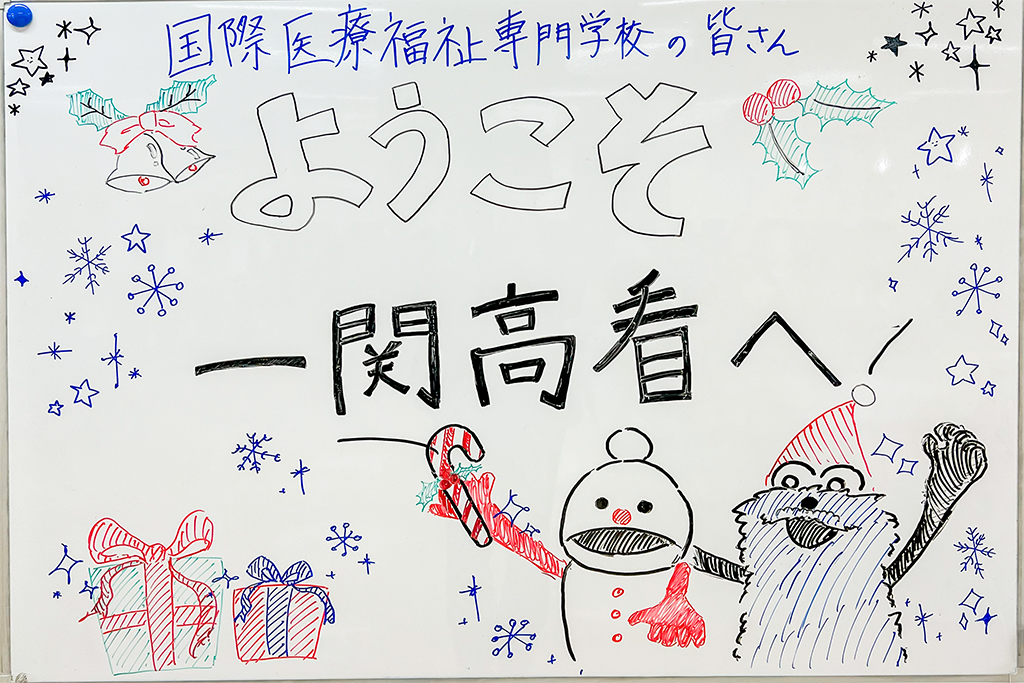 国際医療福祉専門学校の皆さん
ようこそ
一関高看へ!